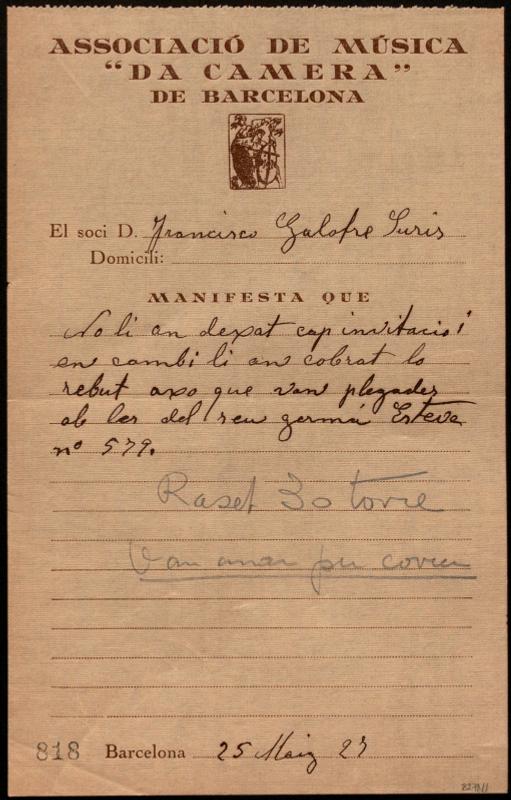 ASSOCIACIÓ DE MÚSICA
"DA CAMERA"
DE BARCELONA
El soci D. Francisco Galofre Suris
Domicili:
MANIFESTA QUE
No li an dexat cap invitació i
en cambi li an cobrat lo
rebut axo que van plegades
ab les del seu germá Esteva
nº 579.
Raset 30 torre
Van anar per correu
818 Barcelona 25 Maig 27